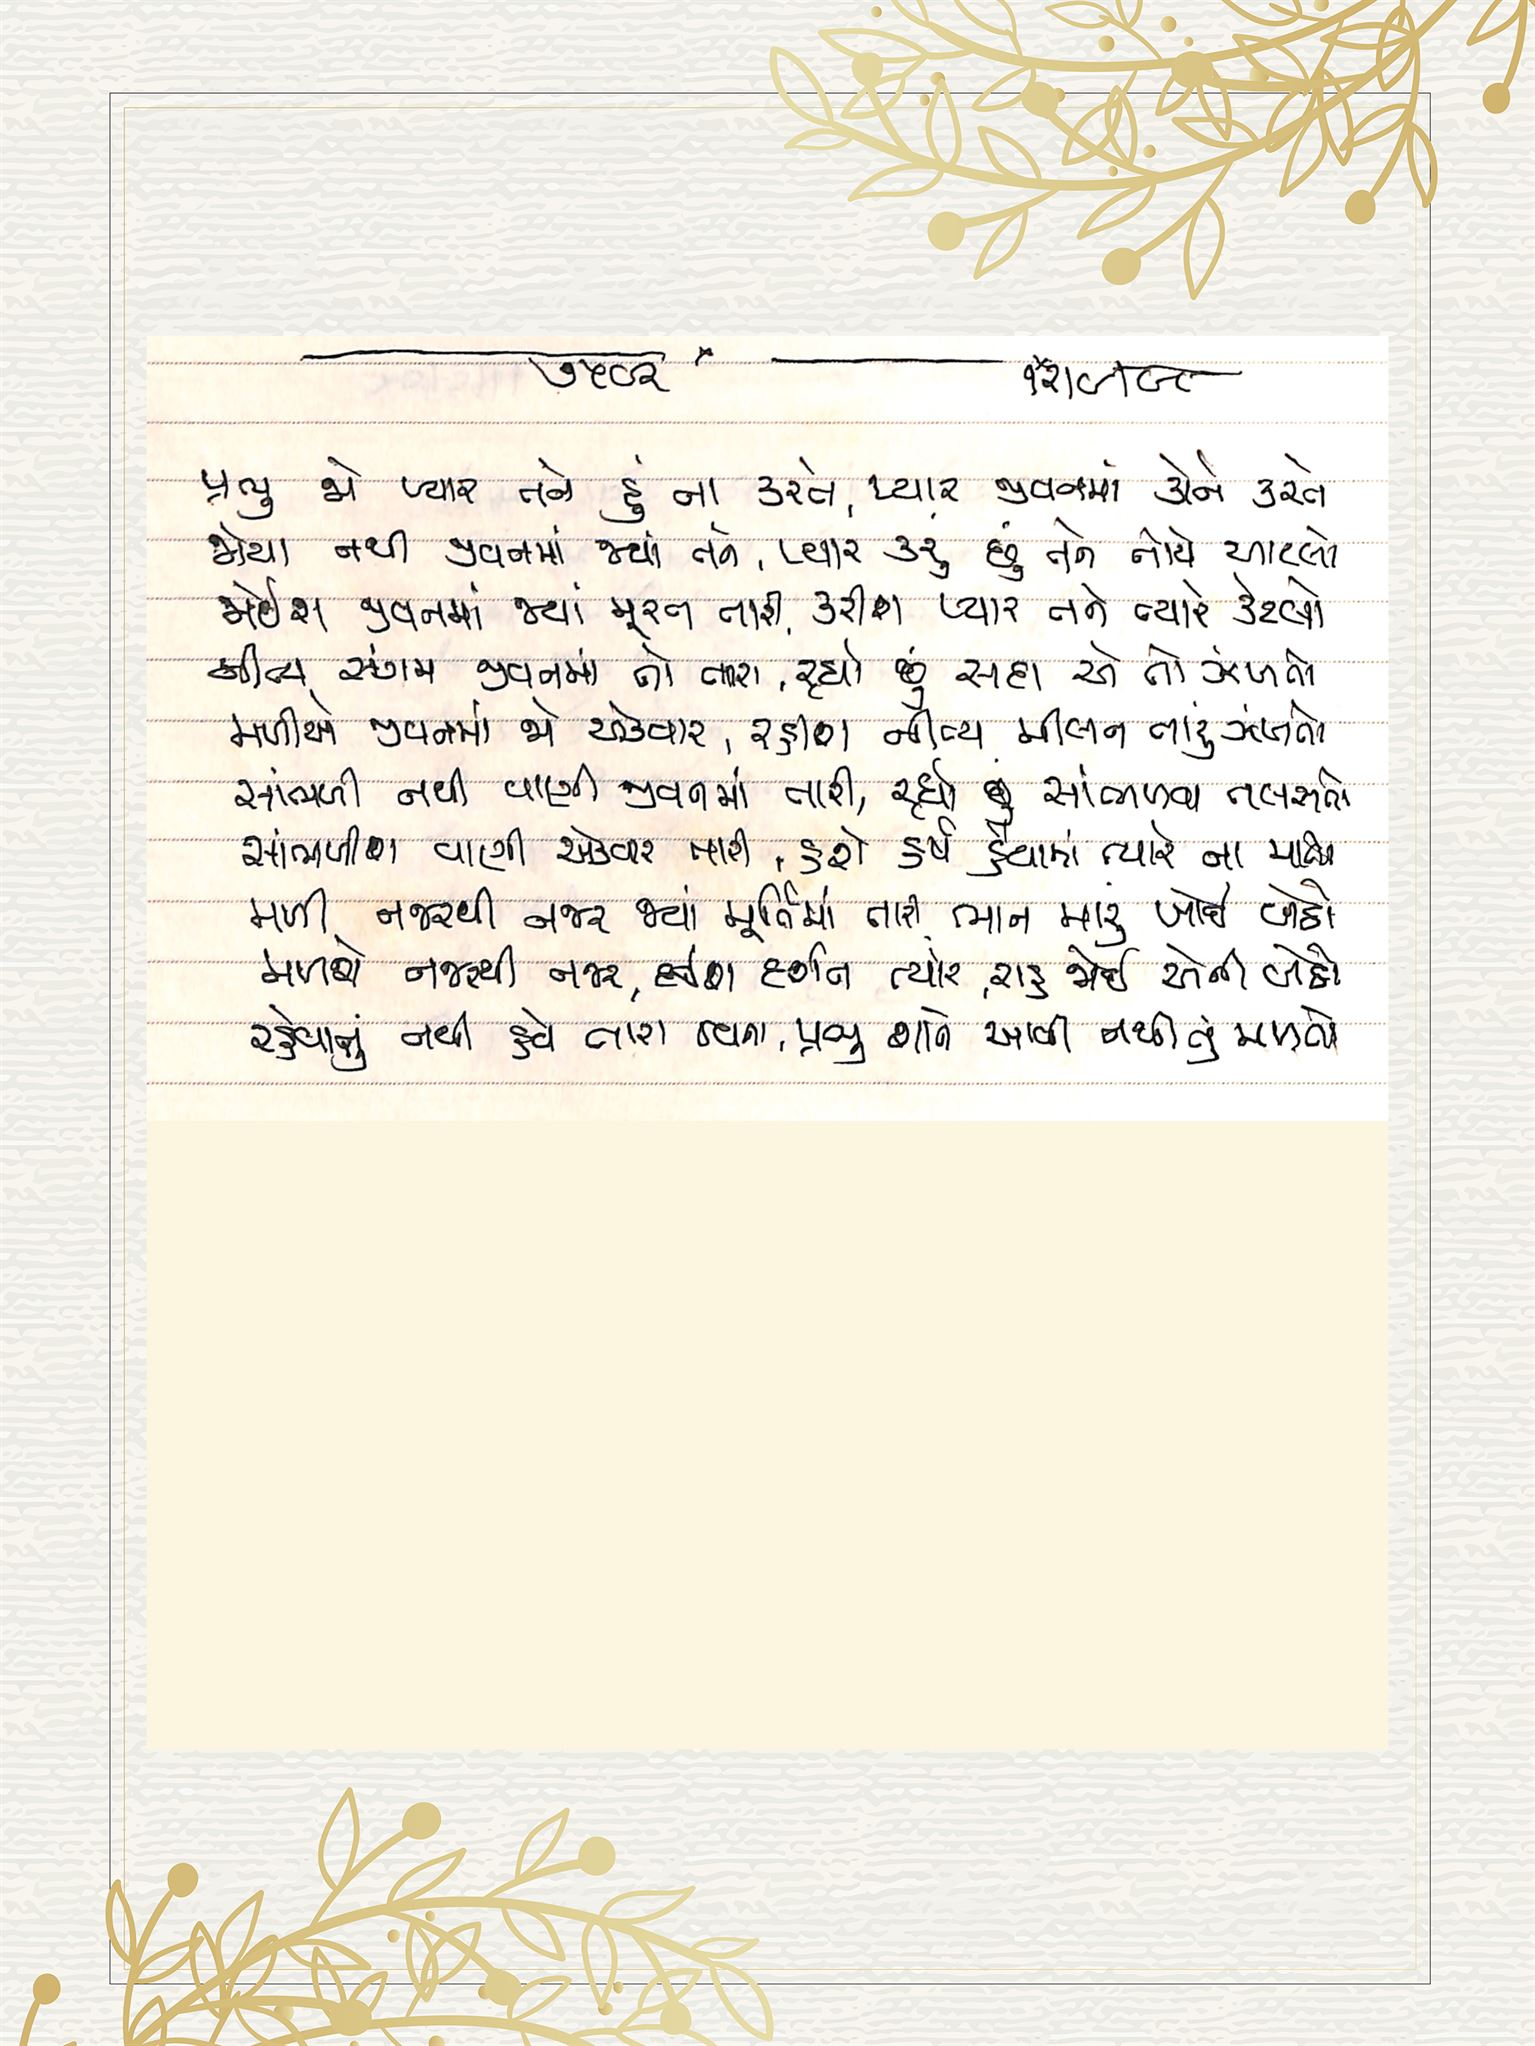 પ્રભુ જો પ્યાર તને હું ના કરતે, પ્યાર જીવનમાં કોને કરતે
જોયા નથી જીવનમાં જ્યાં તને, પ્યાર કરું છું તને તોયે આટલો
જોઈશ જીવનમાં જ્યાં મૂરત તારી, કરીશ પ્યાર તને ત્યારે કેટલો
નીત્ય સંગમ જીવનમાં તો તારા, રહ્યો છું સદા એ તો ઝંખતો
મળીએ જીવનમાં જો એકવાર, રહીશ નીત્ય મીલન તારું ઝંખતો
સાંભળી નથી વાણી જીવનમાં તારી, રહ્યો છું સાંભળવા તલસતો
સાંભળીશ વાણી એકવાર તારી, હશે હર્ષ હૈયામાં ત્યારે ના માતો
મળી નજરથી નજર જ્યાં મૂર્તિમાં તારી, ભાન મારું ખોઈ બેઠો
મળશે નજરથી નજર, દઈશ દર્શન ત્યારે, રાહ જોઈ એની બેઠો
રહેવાનું નથી હવે તારા વિના, પ્રભુ શાને આવી નથી તું મળતો